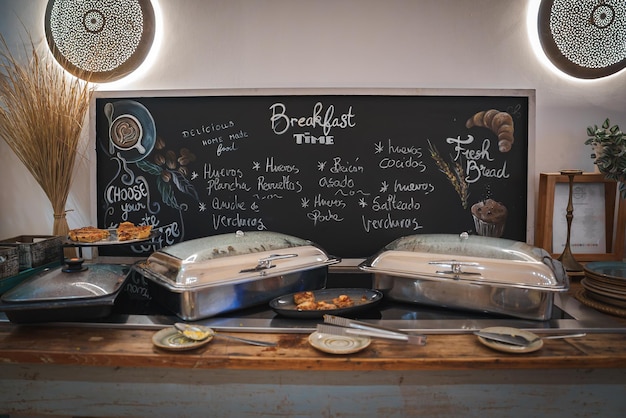 Breakfast
TIME
DELICIOUS
HOME MADE
food
CHOOSE
your
Coffee
* Huevos
Plancha
* Huevos
Revueltas
* Beicon
asado
* huevos
cocidos
* Quiche
Verduras
* Huevos
Poche
* huevos
* Salteado
verduras
Fresh
BREAD